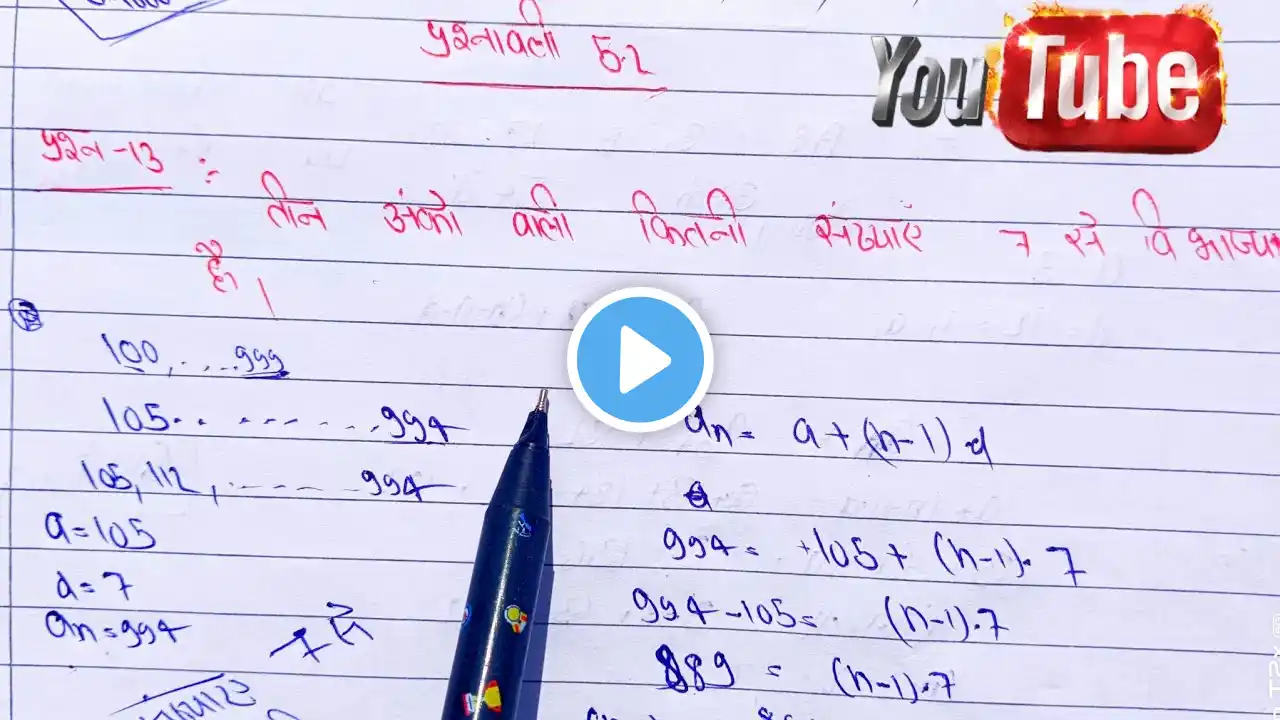 प्रश्नावली 5.2
YouTube
प्रश्न -13 :-
तीन अंको वाली कितनी संख्याएं 7 से विभाज्य
है।
100, ....999
105.. ........994
105, 112, ........994
a=105
d=7
an=994
an= a+(n-1)d
a
994= +105+ (n-1). 7
994-105= (n-1).7
889 = (n-1).7